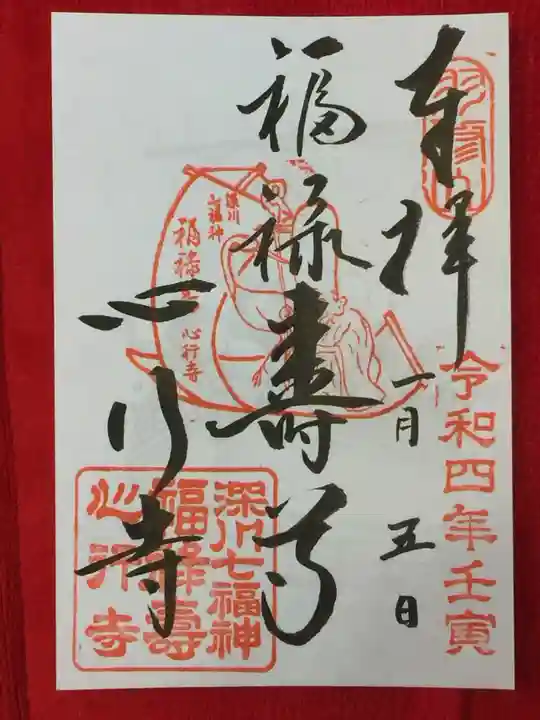 奉拝
令和四年壬寅
一月五日
福禄寿尊
深川
七福神
心行寺
心行寺
深川七福神
福禄壽
心行寺